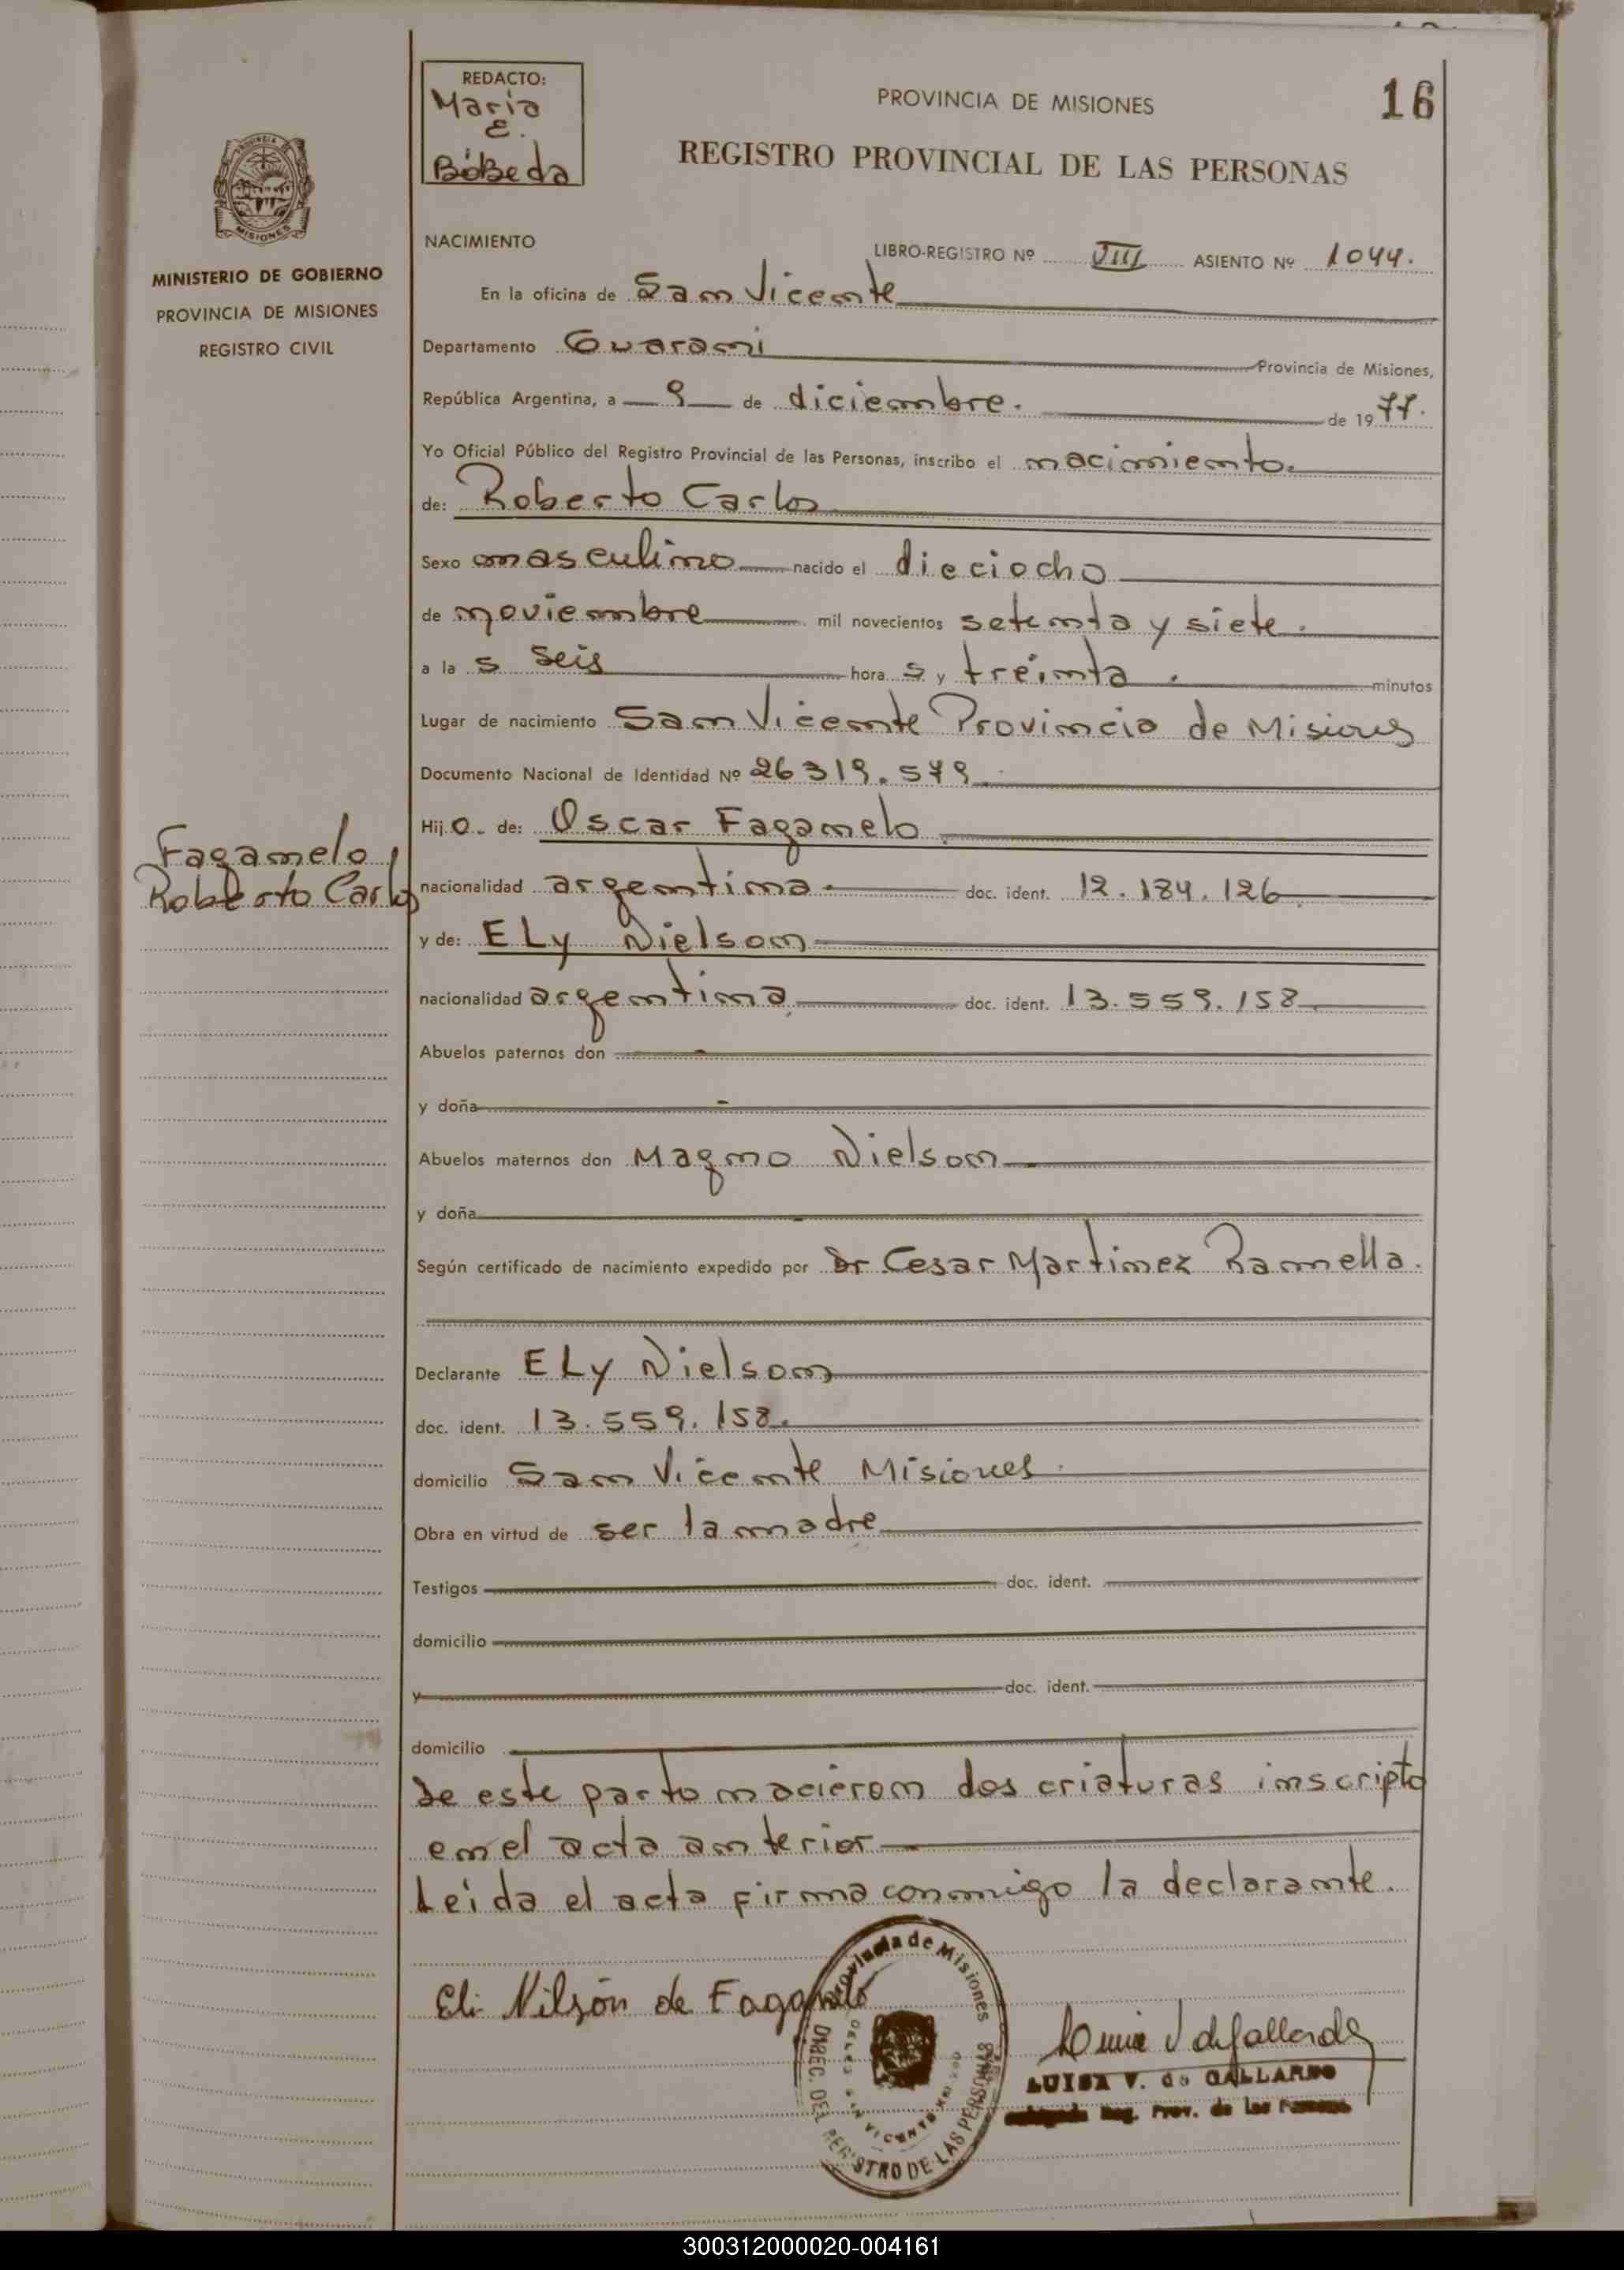 REDACTO:
Maria
E.
Bóbeda
PROVINCIA DE MISIONES
16
REGISTRO PROVINCIAL DE LAS PERSONAS
MISIONES
MINISTERIO DE GOBIERNO
PROVINCIA DE MISIONES
REGISTRO CIVIL
NACIMIENTO
LIBRO-REGISTRO Nº VIII ASIENTO Nº 1044.
En la oficina de San Vicente
Departamento Guarani Provincia de Misiones,
República Argentina, a 9 de diciembre. de 1977.
Yo Oficial Público del Registro Provincial de las Personas, inscribo el nacimiento.
de: Roberto Carlos
Sexo masculino nacido el dieciocho
de noviembre mil novecientos setenta y siete.
a las seis horas y treinta. minutos
Lugar de nacimiento San Vicente Provincia de Misiones
Documento Nacional de Identidad Nº 26319.579
Hijo de: Oscar Faganelo
Faganelo,
Roberto Carlos
nacionalidad argentina doc. ident. 12.184.126
y de: ELy Nielson
nacionalidad argentina doc. ident. 13.559.158
Abuelos paternos don
y doña
Abuelos maternos don Magno Nielson
y doña
Según certificado de nacimiento expedido por Dr Cesar Martinez Ramella.
Declarante ELy Nielson
doc. ident. 13.559.158.
domicilio San Vicente Misiones
Obra en virtud de ser la madre
Testigos doc. ident.
domicilio
y doc. ident.
domicilio
De este parto nacieron dos criaturas inscripto
en el acta anterior
Leida el acta firma conmigo la declarante.
Eli Nilsón de Faganelo
Provincia de Misiones
DIREC. DEL REGISTRO DE LAS PERSONAS
LUISA V. de GALLARDO
Reg. Prov. de las Personas
300312000020-004161